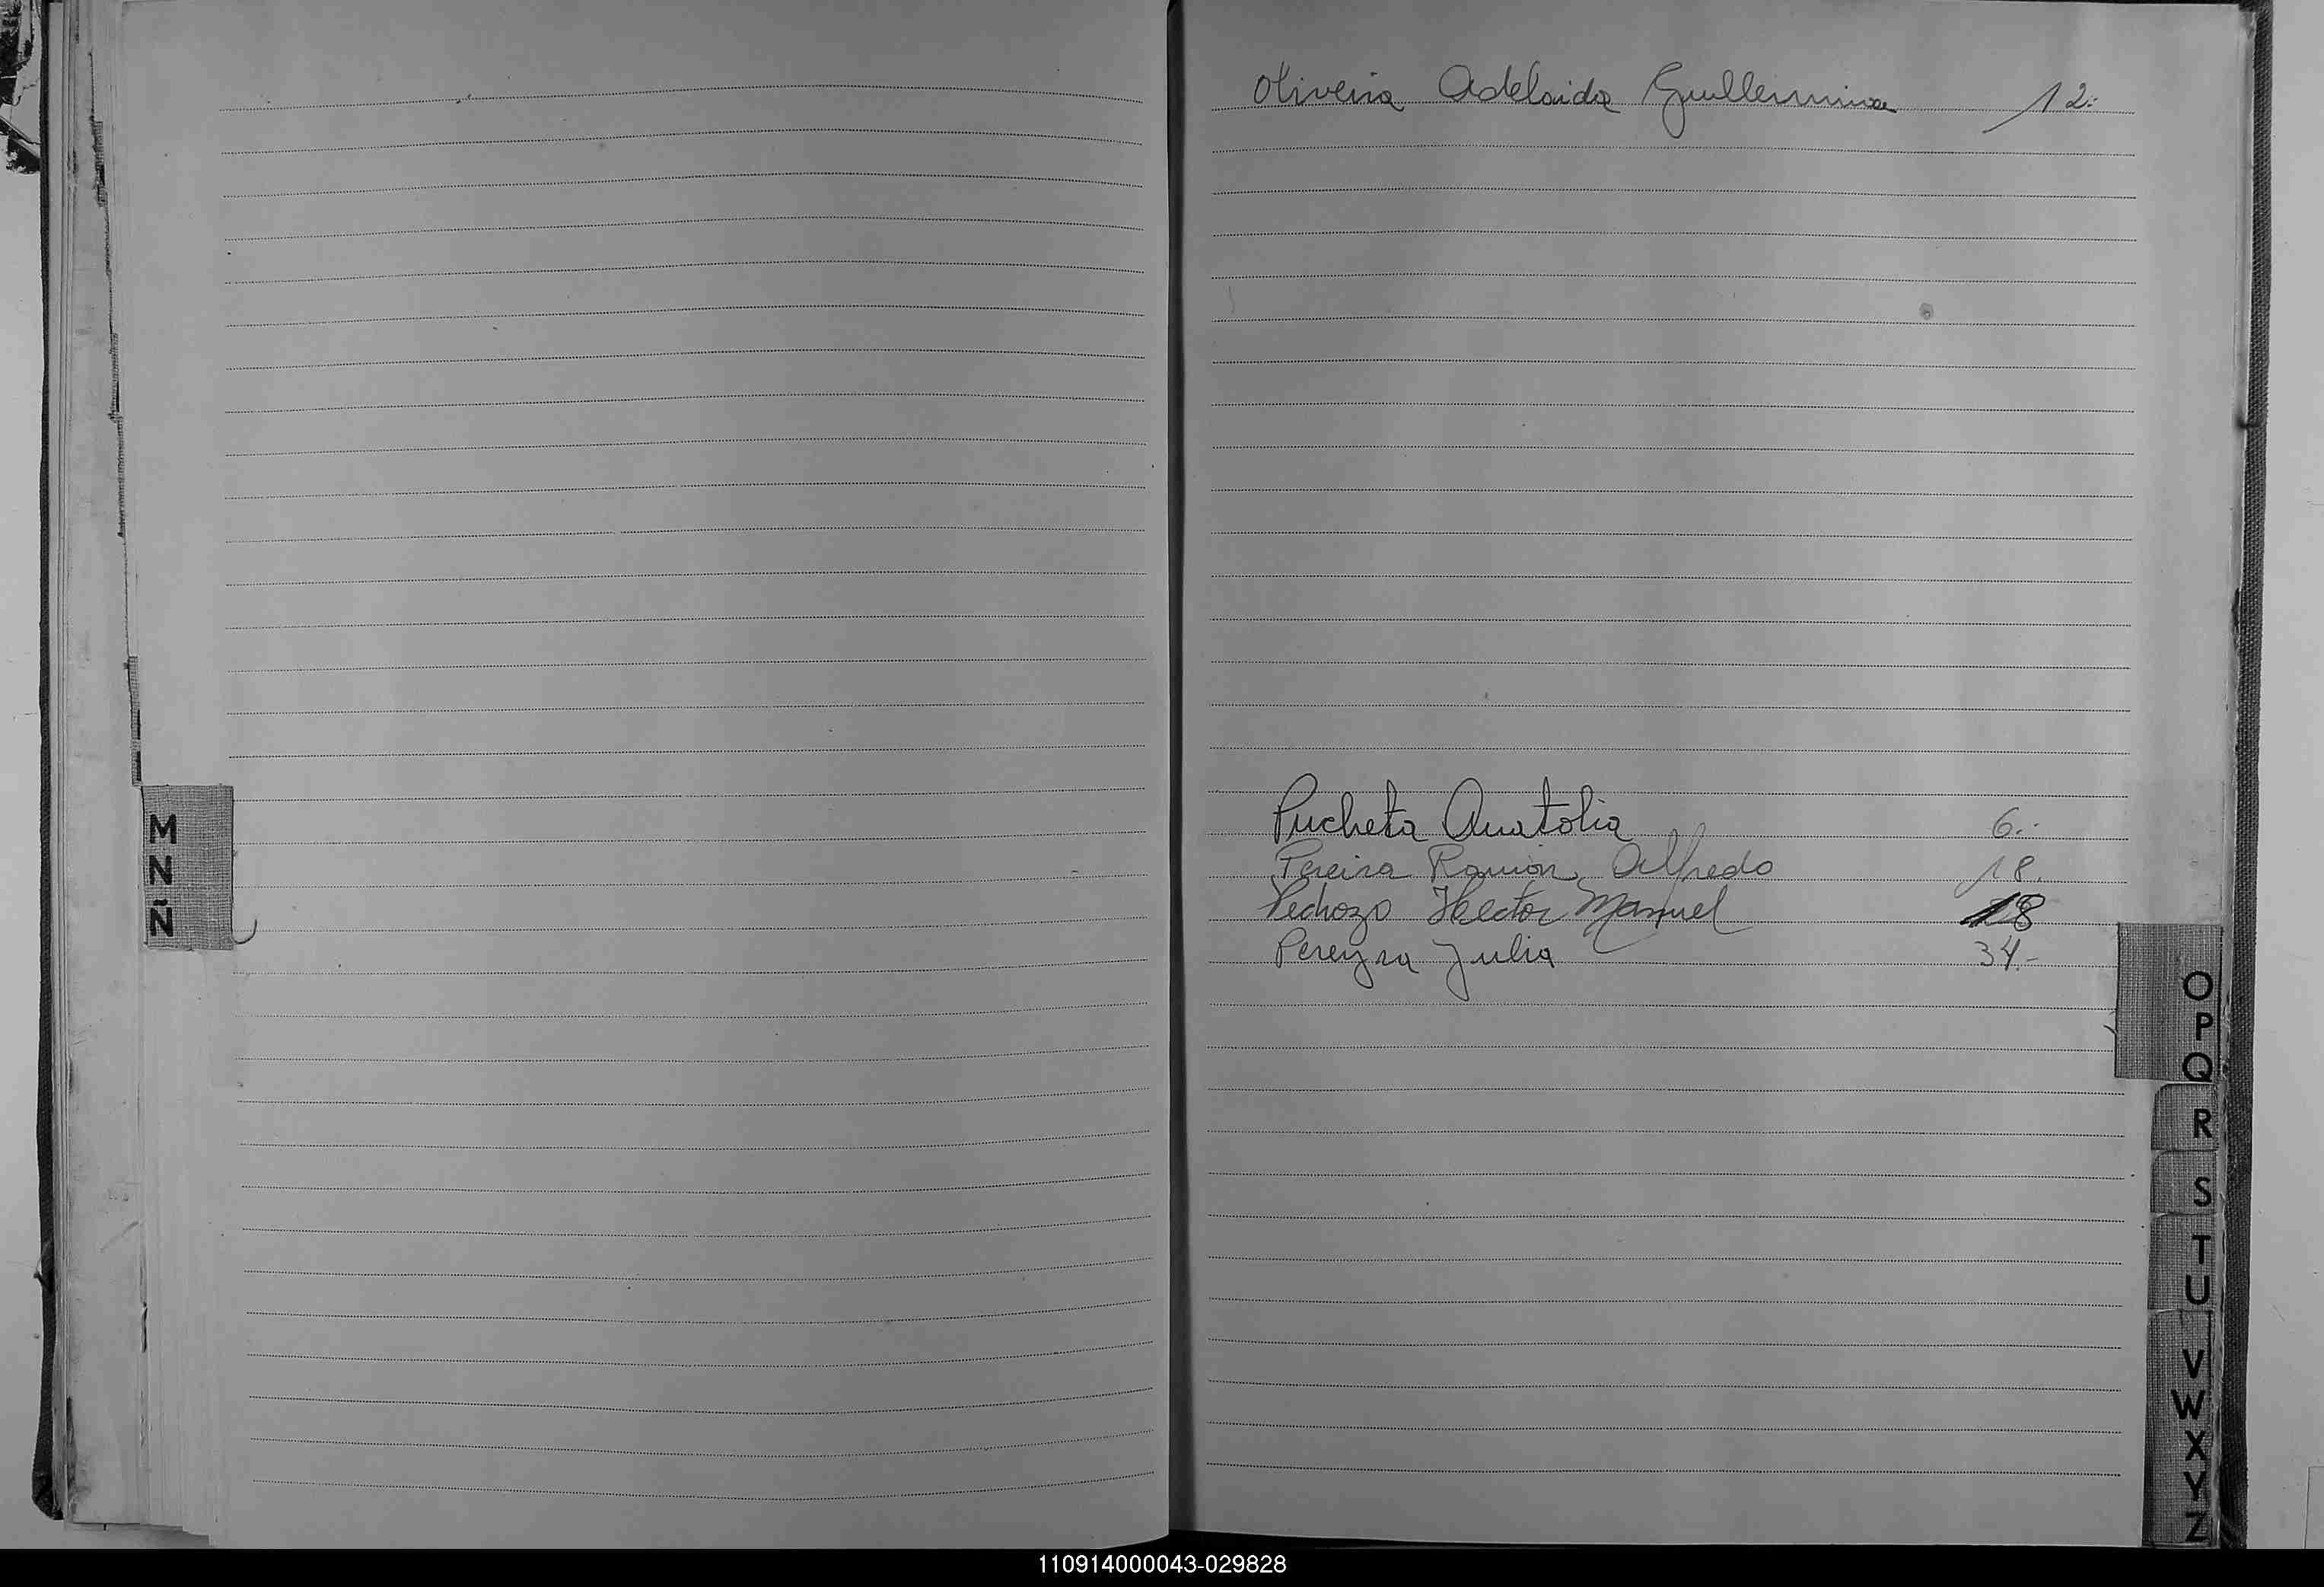 Oliveira Adelaida Guillermina 12.-
Pucheta Anatolia 6.-
Pereira Ramón Alfredo 18.
Pedrozo Hector Manuel 18
Pereyra Julia 34.-
M
N
Ñ
O
P
Q
R
S
T
U
V
W
X
Y
Z
110914000043-029828